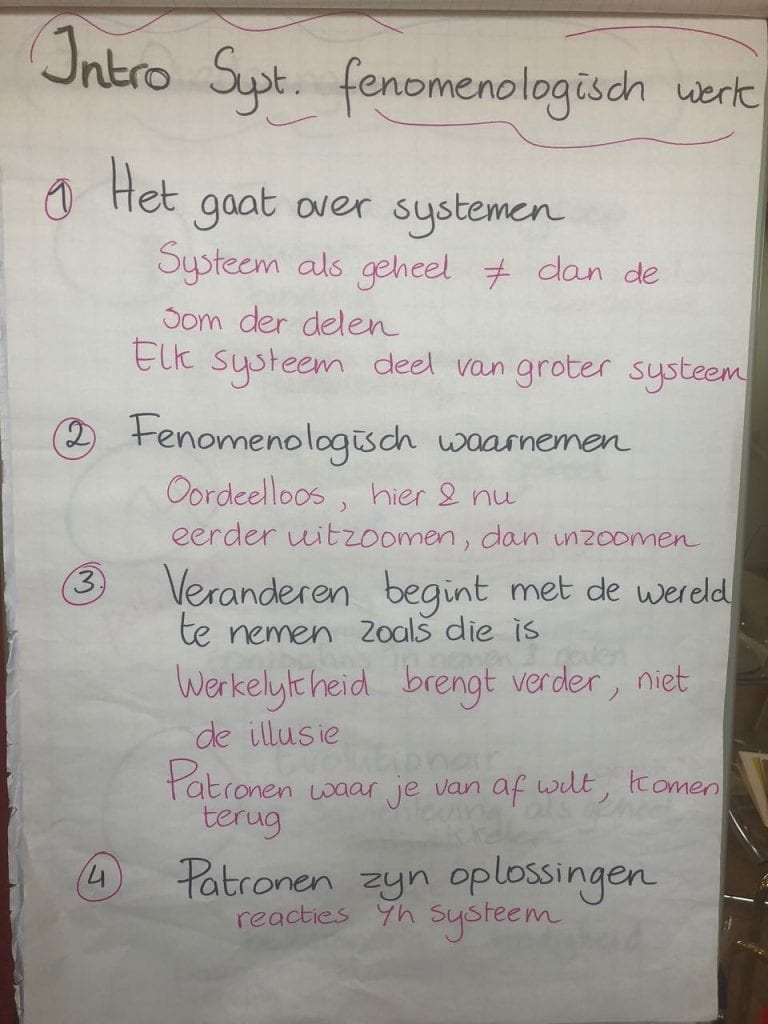 Intro Syst. fenomenologisch werk
1 Het gaat over systemen
Systeem als geheel ≠ dan de
som der delen
Elk systeem deel van groter systeem
2 Fenomenologisch waarnemen
Oordeelloos, hier & nu
eerder uitzoomen, dan inzoomen
3. Veranderen begint met de wereld
te nemen zoals die is
Werkelykheid brengt verder, niet
de illusie
Patronen waar je van af wilt, komen
terug
4 Patronen zyn oplossingen
reacties vh systeem